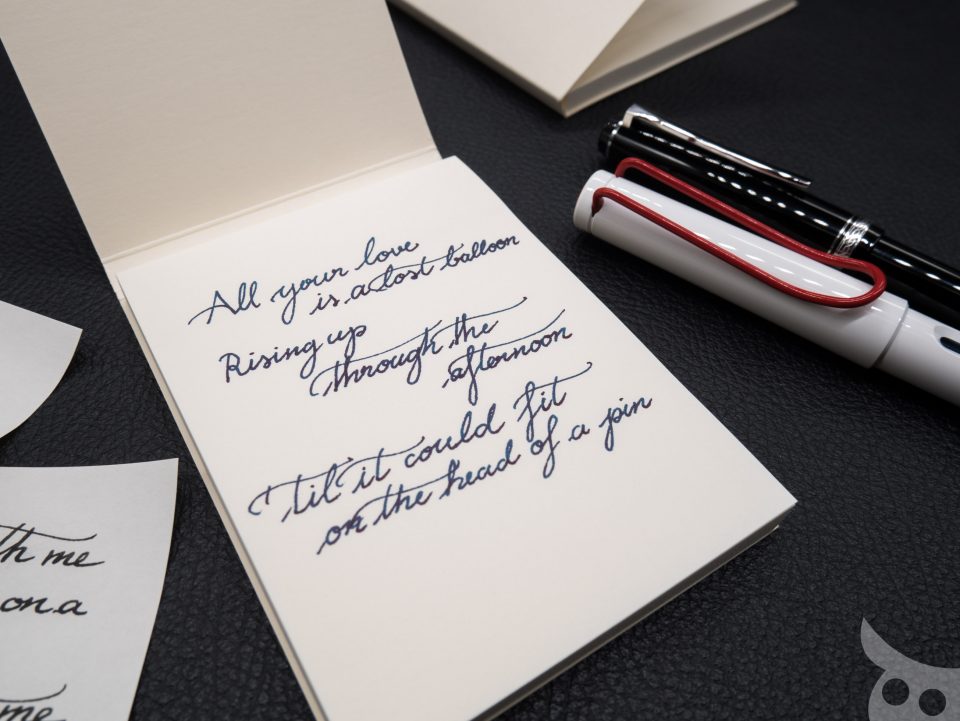 All your love
is a lost balloon
Rising up
through the
afternoon
'til it could fit
on the head of a pin
th me
on a
me